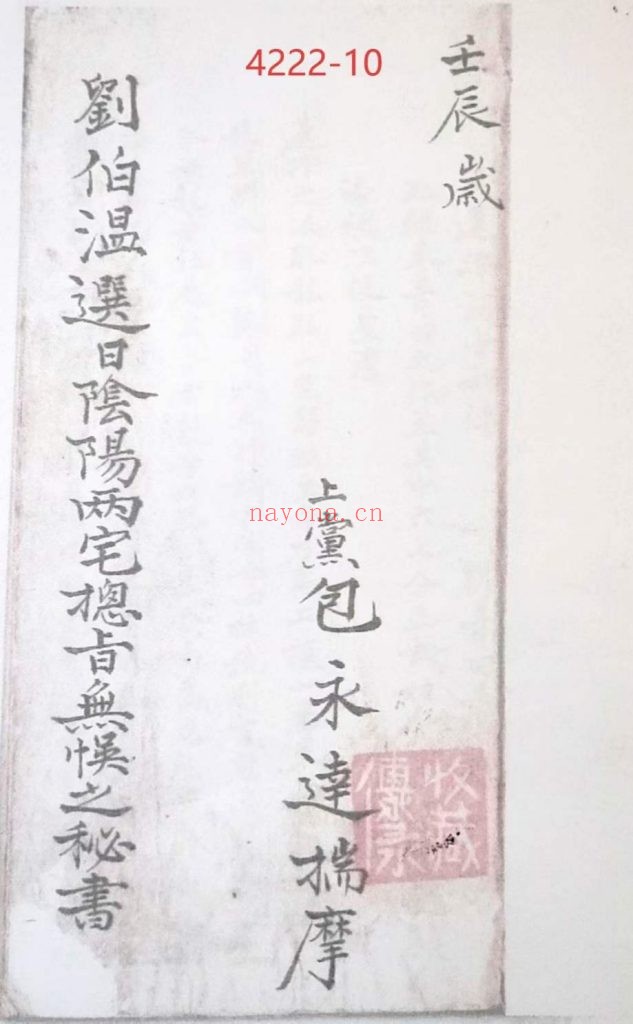 4222-10
壬辰歲
上黨包永達揣摩
劉伯溫選日陰陽兩宅摠旨無悞之秘書
nayona.cn
收藏